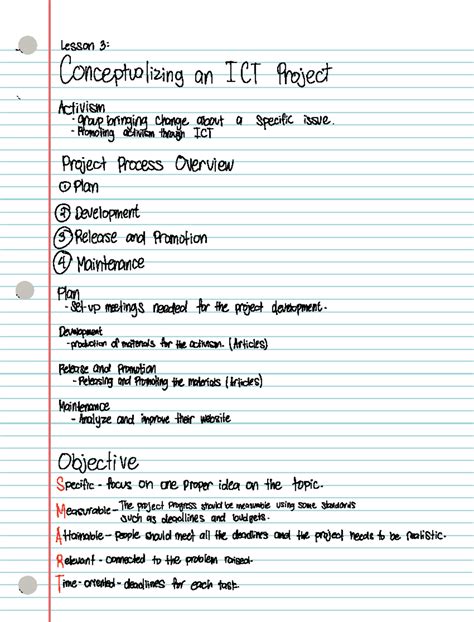 Lesson 3:
Conceptualizing an ICT Project
Activism
- Group bringing change about a specific issue.
- Promoting activism through ICT
Project Process Overview
① Plan
② Development
③ Release and Promotion
④ Maintenance
Plan
- Set-up meetings needed for the project development.
Development
- production of materials for the activism. (Articles)
Release and Promotion
- Releasing and Promoting the materials (Articles)
Maintenance
- Analyze and improve their website
Objective
Specific - focus on one proper idea on the topic.
Measurable - The project progress should be measurable using some standards
such as deadlines and budgets.
Attainable - People should meet all the deadlines and the project needs to be realistic.
Relevant - connected to the problem raised.
Time-oriented - deadlines for each task.